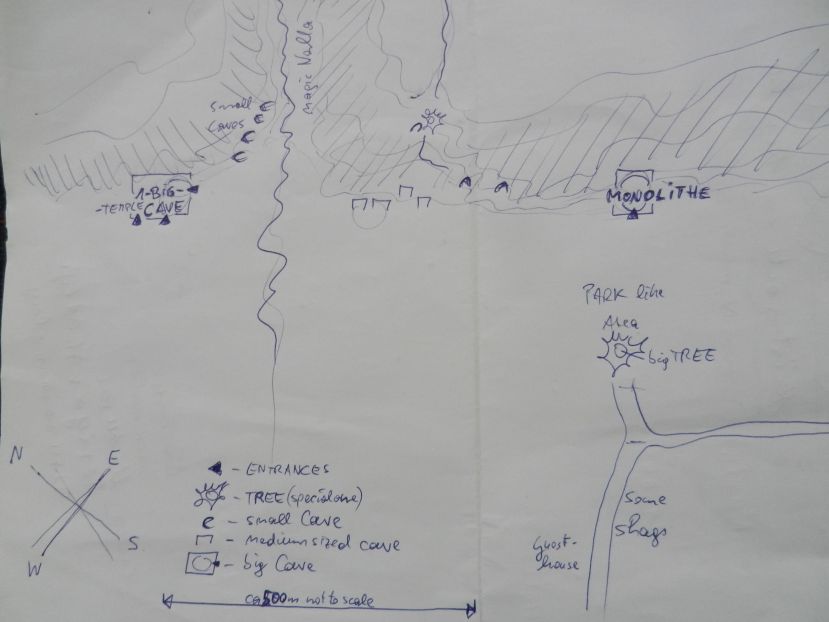 magic Nalla
small
caves
1-BIG-
-TEMPLE CAVE
MONOLITHE
PARK like
Area
big TREE
N
E
S
W
- ENTRANCES
- TREE (special one)
- small Cave
- medium sized cave
- big Cave
ca 500m not to scale
Some
Guest-
house